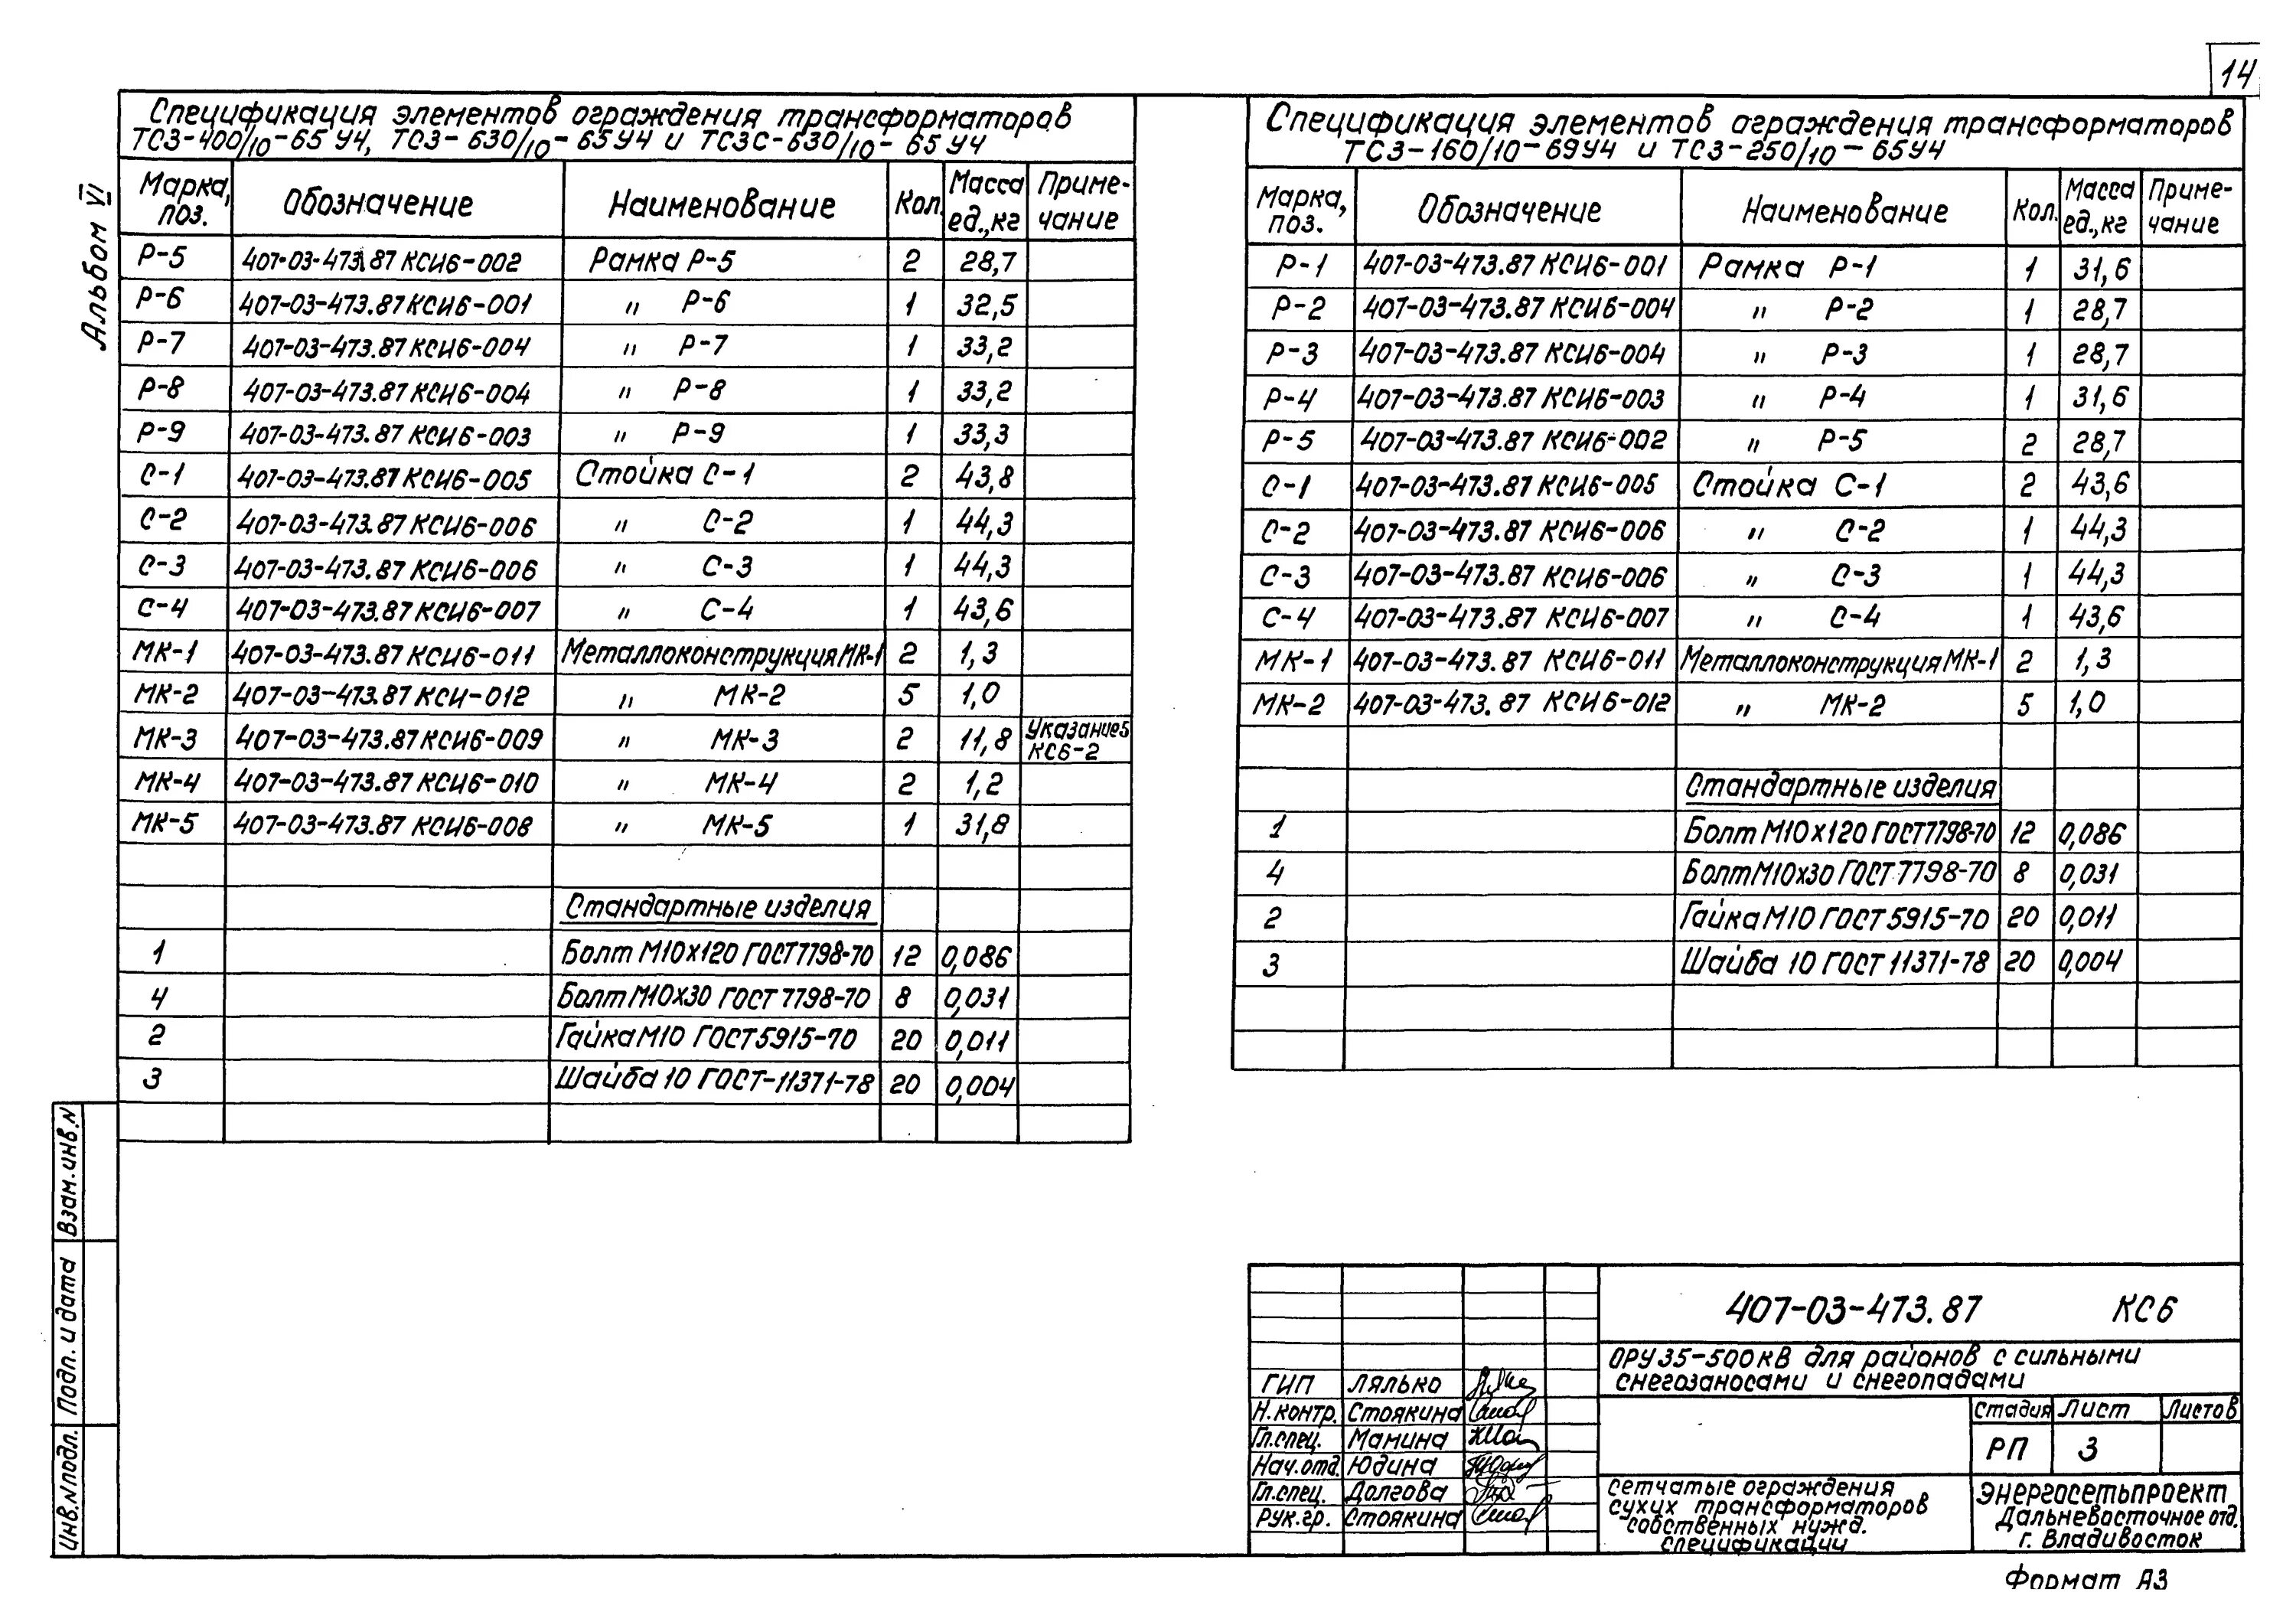 14
Альбом VI
Спецификация элементов ограждения трансформаторов
ТСЗ-400/10-65У4, ТСЗ-630/10-65У4 и ТСЗС-630/10-65У4
Марка, поз. Обозначение Наименование Кол. Масса ед., кг Приме-чание
Р-5 407-03-473.87 КСИ6-002 Рамка Р-5 2 28,7
Р-6 407-03-473.87 КСИ6-001 " Р-6 1 32,5
Р-7 407-03-473.87 КСИ6-004 " Р-7 1 33,2
Р-8 407-03-473.87 КСИ6-004 " Р-8 1 33,2
Р-9 407-03-473.87 КСИ6-003 " Р-9 1 33,3
С-1 407-03-473.87 КСИ6-005 Стойка С-1 2 43,8
С-2 407-03-473.87 КСИ6-006 " С-2 1 44,3
С-3 407-03-473.87 КСИ6-006 " С-3 1 44,3
С-4 407-03-473.87 КСИ6-007 " С-4 1 43,6
МК-1 407-03-473.87 КСИ6-011 Металлоконструкция МК-1 2 1,3
МК-2 407-03-473.87 КСИ-012 " МК-2 5 1,0
МК-3 407-03-473.87 КСИ6-009 " МК-3 2 11,8 Указание5 КС6-2
МК-4 407-03-473.87 КСИ6-010 " МК-4 2 1,2
МК-5 407-03-473.87 КСИ6-008 " МК-5 1 31,8
Стандартные изделия
1 Болт М10х120 ГОСТ7798-70 12 0,086
4 Болт М10х30 ГОСТ 7798-70 8 0,031
2 Гайка М10 ГОСТ5915-70 20 0,011
3 Шайба 10 ГОСТ-11371-78 20 0,004
Спецификация элементов ограждения трансформаторов
ТСЗ-160/10-69У4 и ТСЗ-250/10-65У4
Марка, поз. Обозначение Наименование Кол. Масса ед., кг Приме-чание
Р-1 407-03-473.87 КСИ6-001 Рамка Р-1 1 31,6
Р-2 407-03-473.87 КСИ6-004 " Р-2 1 28,7
Р-3 407-03-473.87 КСИ6-004 " Р-3 1 28,7
Р-4 407-03-473.87 КСИ6-003 " Р-4 1 31,6
Р-5 407-03-473.87 КСИ6-002 " Р-5 2 28,7
С-1 407-03-473.87 КСИ6-005 Стойка С-1 2 43,6
С-2 407-03-473.87 КСИ6-006 " С-2 1 44,3
С-3 407-03-473.87 КСИ6-006 " С-3 1 44,3
С-4 407-03-473.87 КСИ6-007 " С-4 1 43,6
МК-1 407-03-473.87 КСИ6-011 Металлоконструкция МК-1 2 1,3
МК-2 407-03-473.87 КСИ6-012 " МК-2 5 1,0
Стандартные изделия
1 Болт М10х120 ГОСТ7798-70 12 0,086
4 Болт М10х30 ГОСТ 7798-70 8 0,031
2 Гайка М10 ГОСТ 5915-70 20 0,011
3 Шайба 10 ГОСТ 11371-78 20 0,004
Взам. инв. N
Подп. и дата
Инв. N подл.
407-03-473.87 КС6
ОРУ 35-500кВ для районов с сильными
снегозаносами и снегопадами
ГИП Лялько
Н.контр. Стоякина
Гл.спец. Мамина
Нач.отд. Юдина
Гл.спец. Долгова
Рук.гр. Стоякина
Стадия Лист Листов
РП 3
Сетчатые ограждения
сухих трансформаторов
собственных нужд.
Спецификации
Энергосетьпроект
Дальневосточное отд.
г. Владивосток
Формат А3